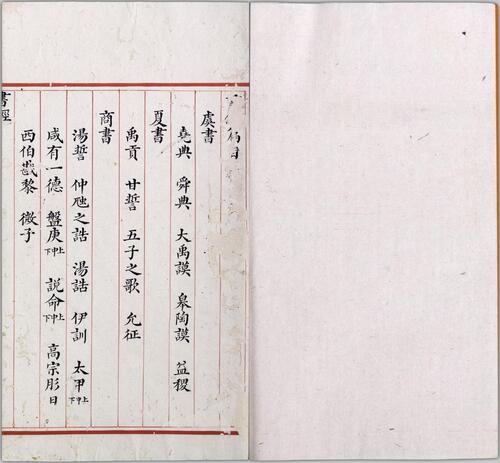 篇目
虞書
堯典 舜典 大禹謨 皋陶謨 益稷
夏書
禹貢 甘誓 五子之歌 允征
商書
湯誓 仲虺之誥 湯誥 伊訓 太甲上中下
咸有一德 盤庚上中下 說命上中下 高宗肜日
西伯戡黎 微子
書經